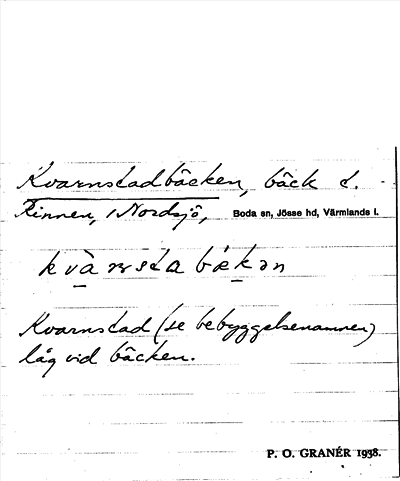 Kvarnstadbäcken, bäck t.
Rinnen, i Nordsjö, Boda sn, Jösse hd, Värmlands l.
kvà ṇsta bækən
Kvarnstad (se bebyggelsenamnen)
låg vid bäcken.
P. O. GRANÉR 1938.